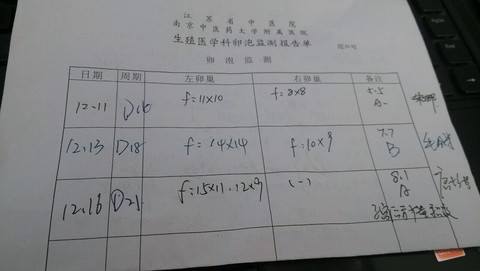 江苏省中医院
南京中医药大学附属医院
生殖医学科卵泡监测报告单
卵泡监测
日期 周期 左卵巢 右卵巢 备注
12.11 D16 f=11×10 f=8×8 5.5
A
12.13 D18 f=14×14 f=10×9 7.7
B
12.16 D21 f=15×11.12×9 (-) 8.1
A